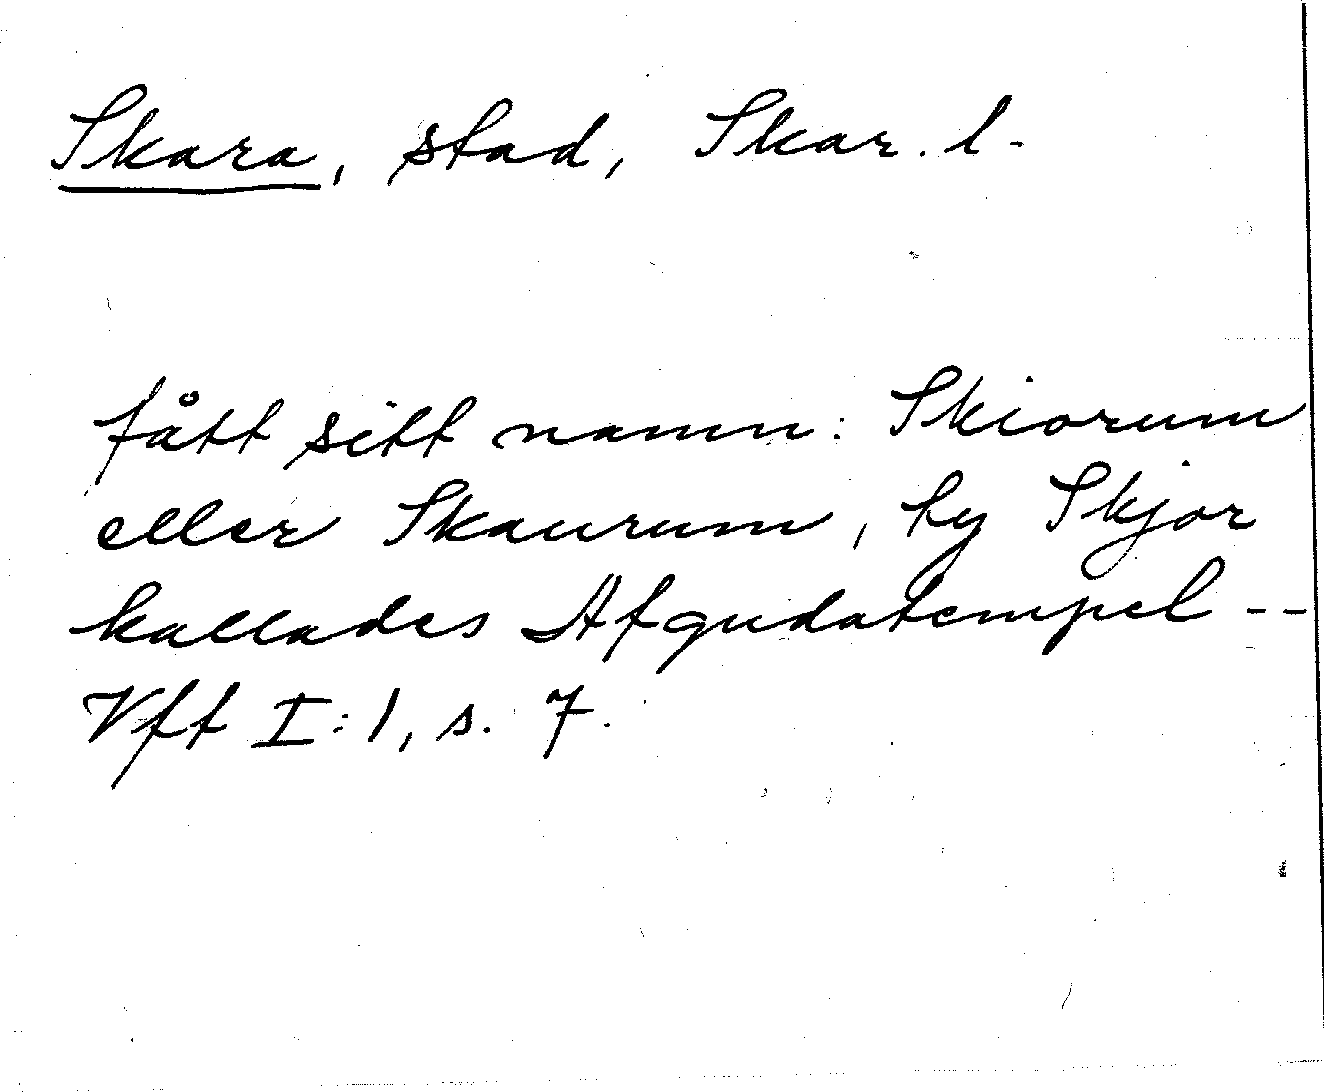 Skara, stad, Skar. l.
fått sitt namn: Skiorum
eller Skaurum, ty Skjor
kallades Afgudatempel --
Vft I:1, s. 7.